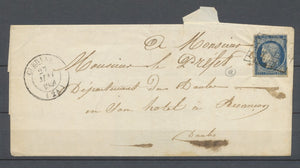 A Monsieur
Monsieur le Préfet
Département du Doubs
en son hotel à Besançon
Doubs
27
(24)